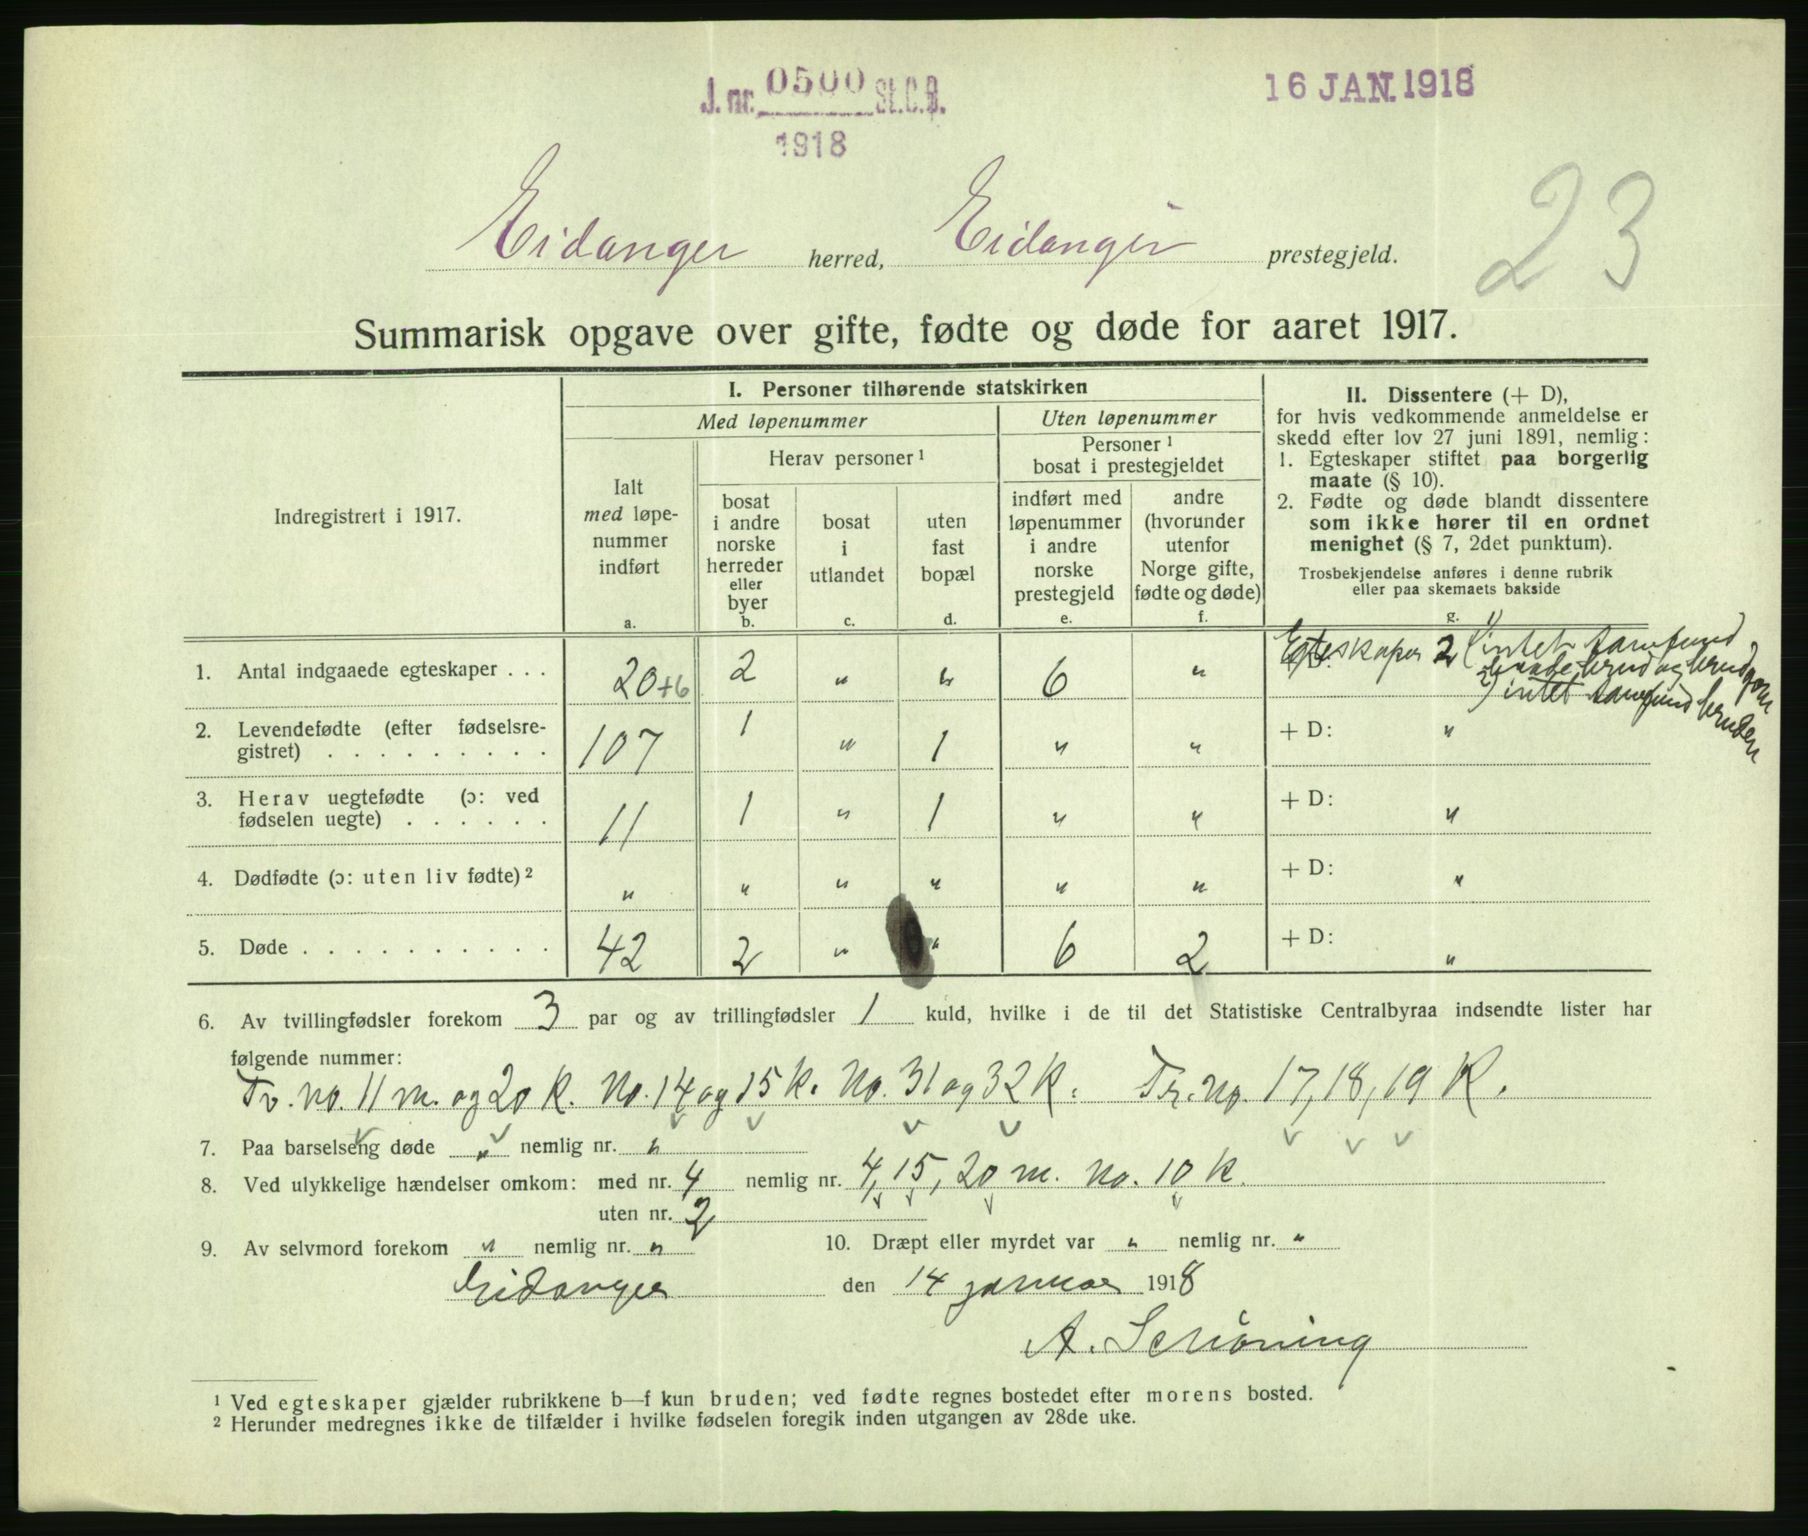 J. nr. 0500 St.C.B.
1918
16 JAN. 1918
23
Eidanger herred, Eidanger prestegjeld.
Summarisk opgave over gifte, fødte og døde for aaret 1917.
Indregistrert i 1917.
I. Personer tilhørende statskirken
Med løpenummer
Uten løpenummer
Ialt
med løpe-
nummer
indført
a.
Herav personer 1
bosat
i andre
norske
herreder
eller
byer
b.
bosat
i
utlandet
c.
uten
fast
bopæl
d.
Personer 1
bosat i prestegjeldet
indført med
løpenummer
i andre
norske
prestegjeld
e.
andre
(hvorunder
utenfor
Norge gifte,
fødte og døde)
f.
II. Dissentere (+ D),
for hvis vedkommende anmeldelse er
skedd efter lov 27 juni 1891, nemlig:
1. Egteskaper stiftet paa borgerlig
maate (§ 10).
2. Fødte og døde blandt dissentere
som ikke hører til en ordnet
menighet (§ 7, 2det punktum).
Trosbekjendelse anføres i denne rubrik
eller paa skemaets bakside
g.
1. Antal indgaaede egteskaper . . . 20+6 2 " " 6 " Egteskaper 2 1) intet samfund
baade brud og brudgom
2) intet samfund bruden
2. Levendefødte (efter fødselsre-
gistret) . . . . . . . . . 107 1 " 1 " " + D: "
3. Herav uegtefødte (ɔ: ved
fødselen uegte) . . . . . . 11 1 " 1 " " + D: "
4. Dødfødte (ɔ: uten liv fødte) 2 " " " " " " + D: "
5. Døde . . . . . . . . . . 42 2 " " 6 2 + D: "
6. Av tvillingfødsler forekom 3 par og av trillingfødsler 1 kuld, hvilke i de til det Statistiske Centralbyraa indsendte lister har
følgende nummer:
Tv. no. 11 m. og 20 K. No. 14 og 15 K. No. 31 og 32 K. Tr. no. 17, 18, 19 K.
7. Paa barselseng døde " nemlig nr. "
8. Ved ulykkelige hændelser omkom: med nr. 4 nemlig nr. 4, 15, 20 m. no. 10 K.
uten nr. 2
9. Av selvmord forekom " nemlig nr. " 10. Dræpt eller myrdet var " nemlig nr. "
Eidanger den 14 januar 1918
A. Schöning
1 Ved egteskaper gjælder rubrikkene b—f kun bruden; ved fødte regnes bostedet efter morens bosted.
2 Herunder medregnes ikke de tilfælder i hvilke fødselen foregik inden utgangen av 28de uke.